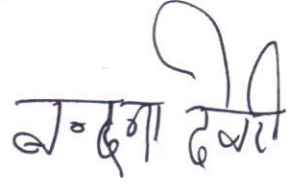 वन्दना देवी